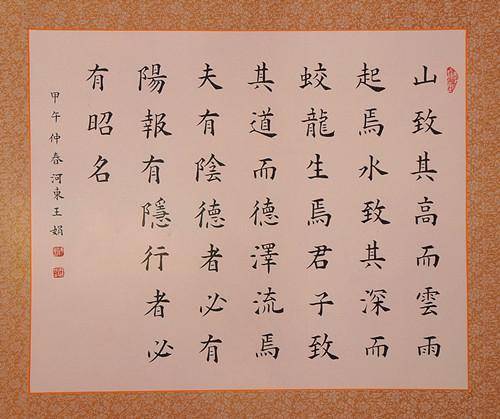 山致其高而雲雨
起焉水致其深而
蛟龍生焉君子致
其道而德澤流焉
夫有陰德者必有
陽報有隱行者必
有昭名
甲午仲春河東王娟